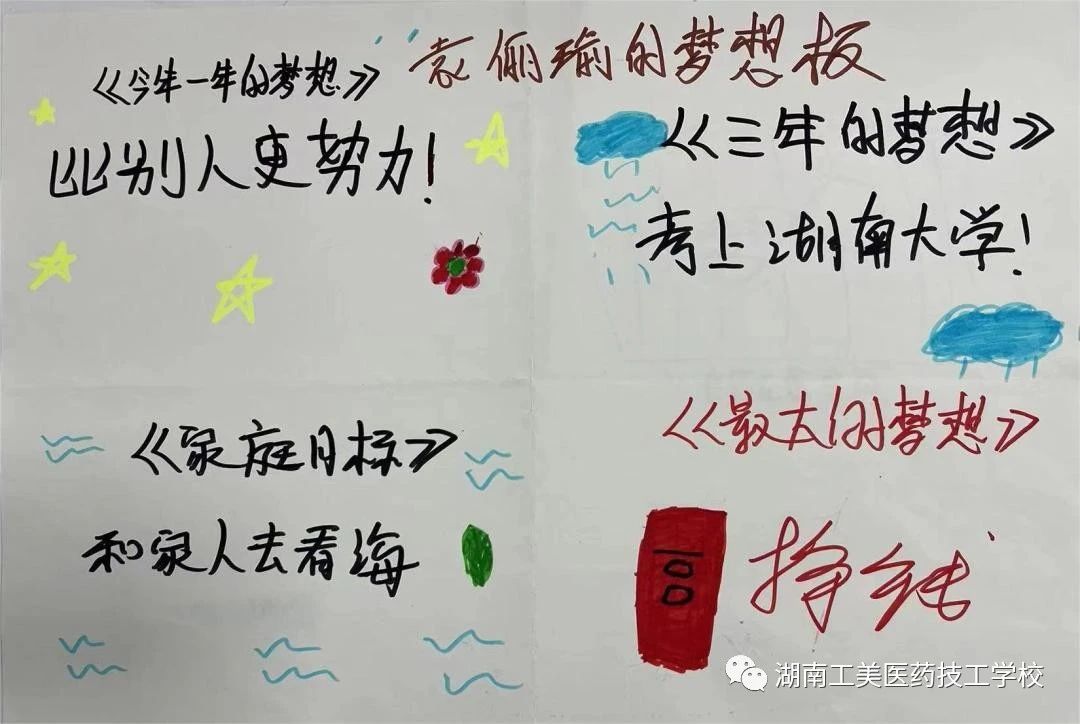 袁俪瑜的梦想板
《今年一年的梦想》
比别人更努力!
《三年的梦想》
考上湖南大学!
《家庭目标》
和家人去看海
《最大的梦想》
100
挣钱
湖南工美医药技工学校